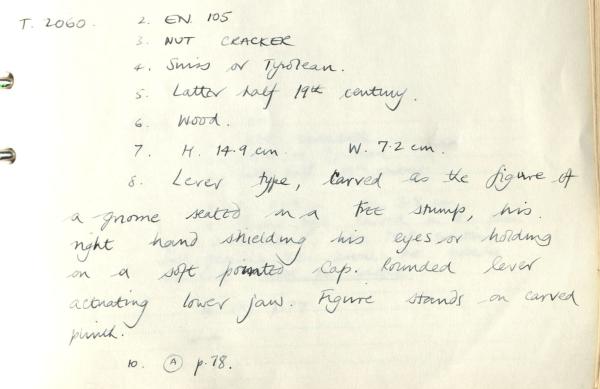 T. 2060. 2. EN. 105
3. NUT CRACKER
4. Swiss or Tyrolean.
5. Latter half 19th century.
6. Wood.
7. H. 14.9 cm. W. 7.2 cm.
8. Lever type, carved as the figure of
a gnome seated on a tree stump, his
right hand shielding his eyes or holding
on a soft pointed cap. Rounded lever
actuating lower jaw. Figure stands on carved
plinth.
10. (A) p. 78.